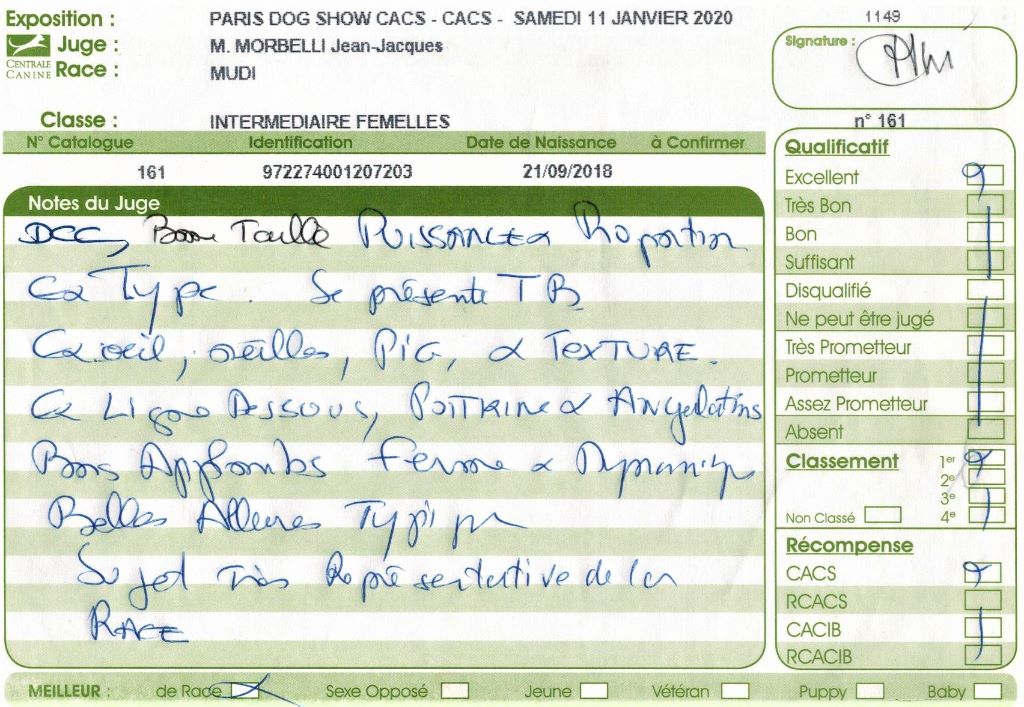 Exposition : PARIS DOG SHOW CACS - CACS - SAMEDI 11 JANVIER 2020
1149
CENTRALE CANINE
Juge : M. MORBELLI Jean-Jacques
Race : MUDI
Signature :
Classe : INTERMEDIAIRE FEMELLES
n° 161
N° Catalogue Identification Date de Naissance à Confirmer
161 972274001207203 21/09/2018
Notes du Juge
DCC, Bonne Taille PUISSANCE & Proportion
Ca Type. Se présente TB
Ca oeil, oreilles, PIG, & TEXTURE.
Ca Ligne DESSOUS, POITRINE & Angulations
Bons Applombs Ferme & Dynamique
Belles Allures Typique
Sujet très Représentative de la
RACE
Qualificatif
Excellent
Très Bon
Bon
Suffisant
Disqualifié
Ne peut être jugé
Très Prometteur
Prometteur
Assez Prometteur
Absent
Classement 1er
2e
3e
Non Classé 4e
Récompense
CACS
RCACS
CACIB
RCACIB
MEILLEUR : de Race Sexe Opposé Jeune Vétéran Puppy Baby